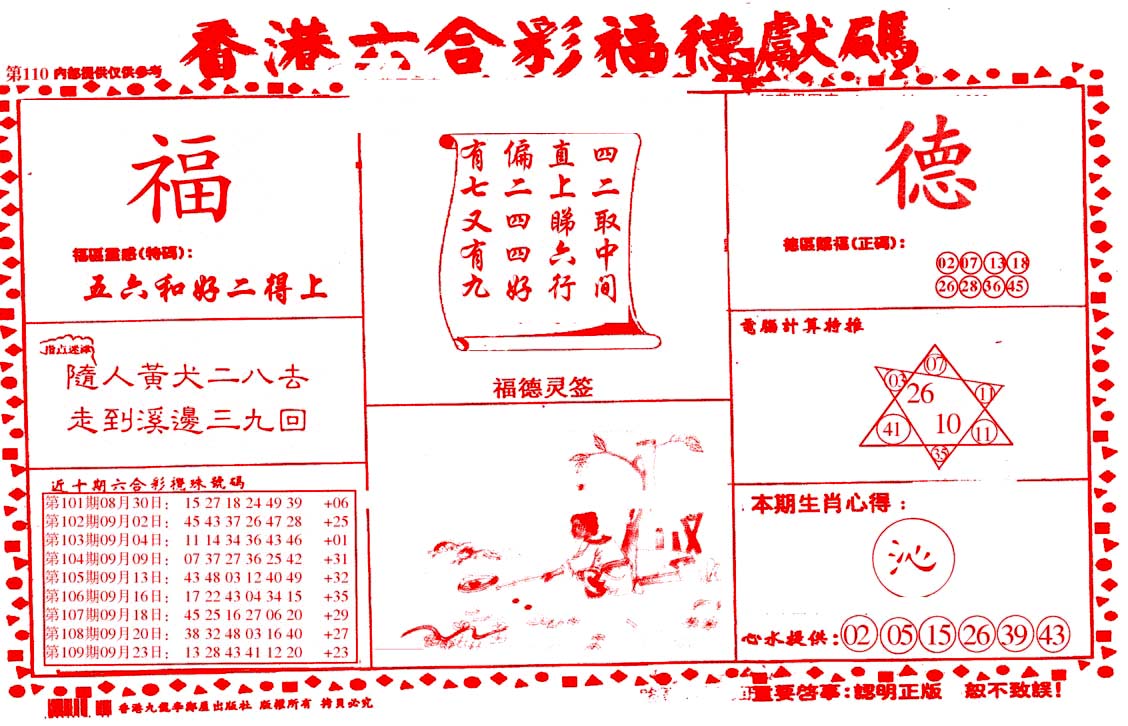 香港六合彩福德獻碼
第110 内部提供仅供参考
福
福區靈感(特碼):
五六和好二得上
指点迷津
隨人黃犬二八去
走到溪邊三九回
近十期六合彩攪珠號碼
第101期08月30日: 15 27 18 24 49 39 +06
第102期09月02日: 45 43 37 26 47 28 +25
第103期09月04日: 11 14 34 36 43 46 +01
第104期09月09日: 07 37 27 36 25 42 +31
第105期09月13日: 43 48 03 12 40 49 +32
第106期09月16日: 17 22 43 04 34 15 +35
第107期09月18日: 45 25 16 27 06 20 +29
第108期09月20日: 38 32 48 03 16 40 +27
第109期09月23日: 13 28 43 41 12 20 +23
四二取中间
直上睇六行
偏二四四好
有七又有九
福德灵签
德
德區賜福(正碼):
02 07 13 18
26 28 36 45
電腦計算特推
07
03 26 11
41 10 11
35
本期生肖心得:
沁
心水提供: 02 05 15 26 39 43
香港九龍 出版社 版權所有 拷貝必究
重要啓事:認明正版 恕不致誤!